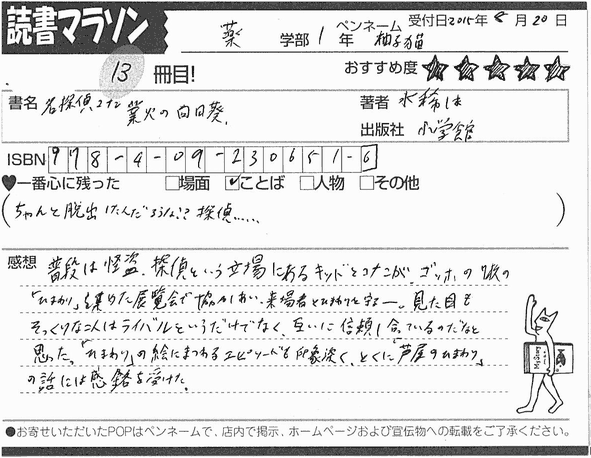 読書マラソン
薬 学部 1 年 ペンネーム 柚子猫 受付日2015年 8 月 20 日
13 冊目! おすすめ度 ★★★★★
書名 名探偵コナン 業火の向日葵
著者 水稀しま
出版社 小学館
ISBN 978-4-09-230651-6
♥一番心に残った □場面 ☑ことば □人物 □その他
(ちゃんと脱出したんだろうな!? 探偵……)
感想 普段は怪盗、探偵という立場にあるキッドとコナンが、ゴッホの7枚の
「ひまわり」を集めた展覧会で協力しあい、来場者とひまわりを守る―。見た目も
そっくりな2人はライバルというだけでなく、互いに信頼し合っているのだなと
思った。「ひまわり」の絵にまつわるエピソードも印象深く、とくに「芦屋のひまわり」
の話には感銘を受けた。
●お寄せいただいたPOPはペンネームで、店内で掲示、ホームページおよび宣伝物への転載をご了承ください。